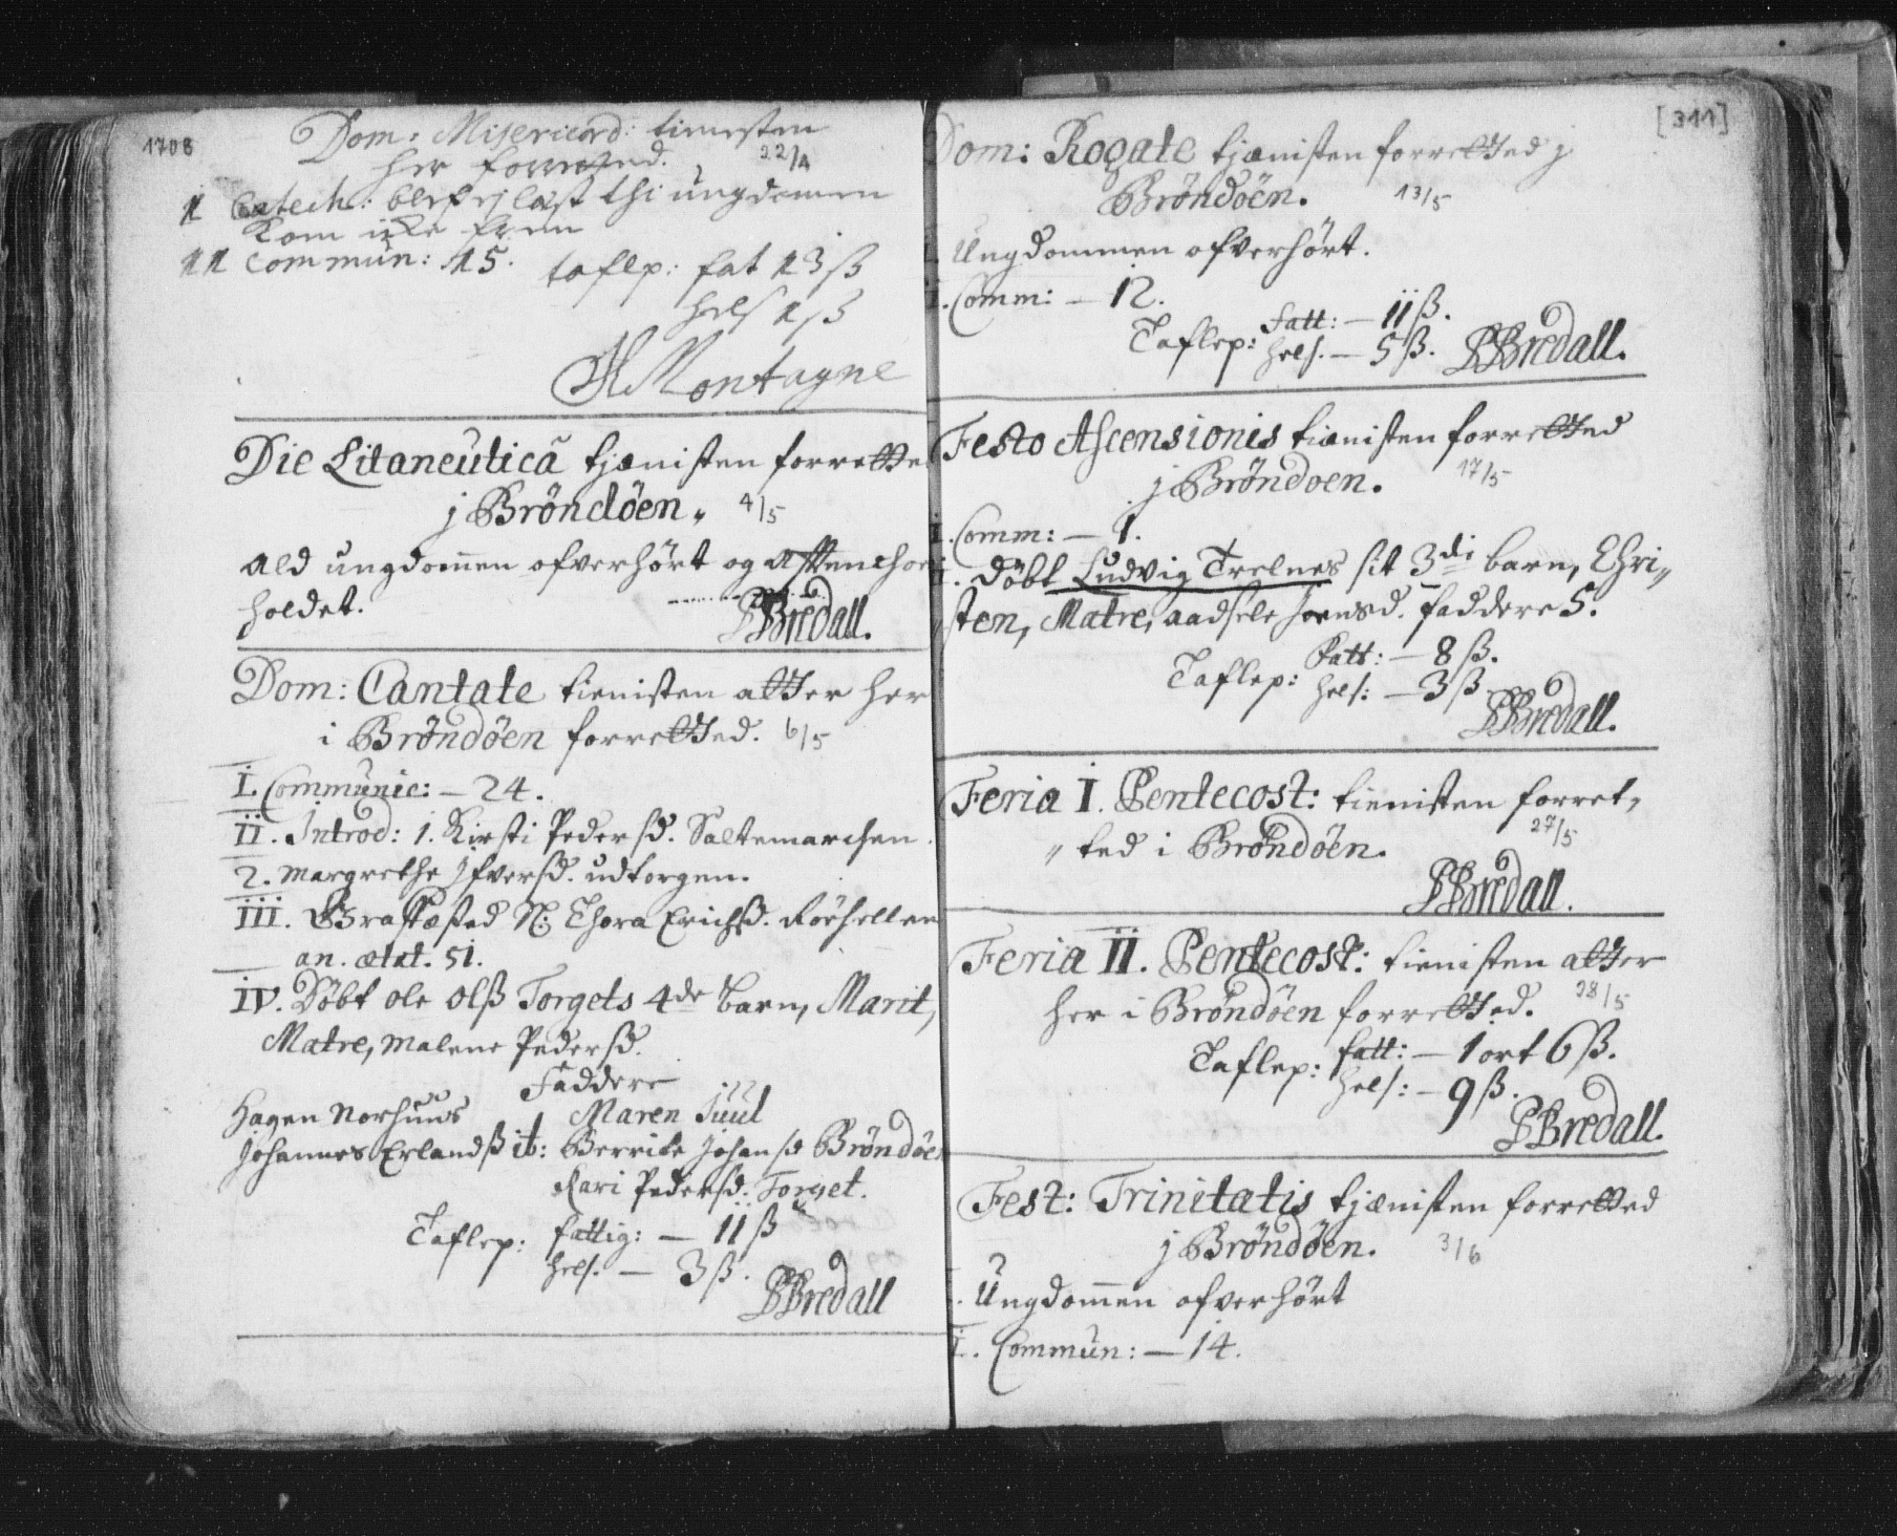 1708
Dom: Misericord: tienesten
her forretted. 22/4
1 Catech: blef ej læst thi ungdommen
kom icke frem
11 Commun: 15. taflp: fat 13 ß
hels 1 ß
Montagne
Die Litaneutica tjænisten forrette
j Brøndöen. 4/5
Ald ungdom̄en ofverhört og Afften
holdet.
PBredall.
Dom: Cantate tienisten atter her
i Brøndöen forretted. 6/5
I. Communic: – 24.
II. Introd: 1. Kirsti Pedersd. Saltemarchen.
2. Margrethe Ifversd. udtorgen.
III. Græsfæsted N: Thora Erichsd.
an. ætat. 51.
IV. Döbt Ole Olß Torgets 4de barn, Marit,
Matre, Malene Pedersd.
Faddere
Hagen Norhuus Maren Juul
Johannes Erlandß it: Berrite Johansd Brøndöe
Kari Pedersd. Torget.
Taflep: fattig: – 11 ß
hels. – 3 ß.
PBredall
[311]
Dom: Rogate tjænisten forretted j
Brøndöen. 13/5
Ungdommen ofverhört.
. Comm: – 12.
Taflep: fatt: – 11 ß.
hels. – 5 ß. PBredall.
Festo Ascensionis tiænisten forretted
j Brøndoen. 17/5
. Comm: – 1.
. Döbt Ludvig Trelnes sit 3di barn, Chri„
„sten, Matre, Faddere 5.
Taflep: fatt: – 8 ß.
hels: – 3 ß
PBredall.
Feria I. Pentecost: tienisten forret„
„ted i Brøndöen. 27/5
PBredall.
Feria II. Pentecost: tienisten atter
her i Brøndöen forretted. 28/5
Taflep: fatt: – 1 ort 6 ß.
hels: – 9 ß.
PBredall.
Fest: Trinitatis tjænisten forretted
j Brøndöen. 3/6
. Ungdom̄en ofverhört
I. Commun: – 14.